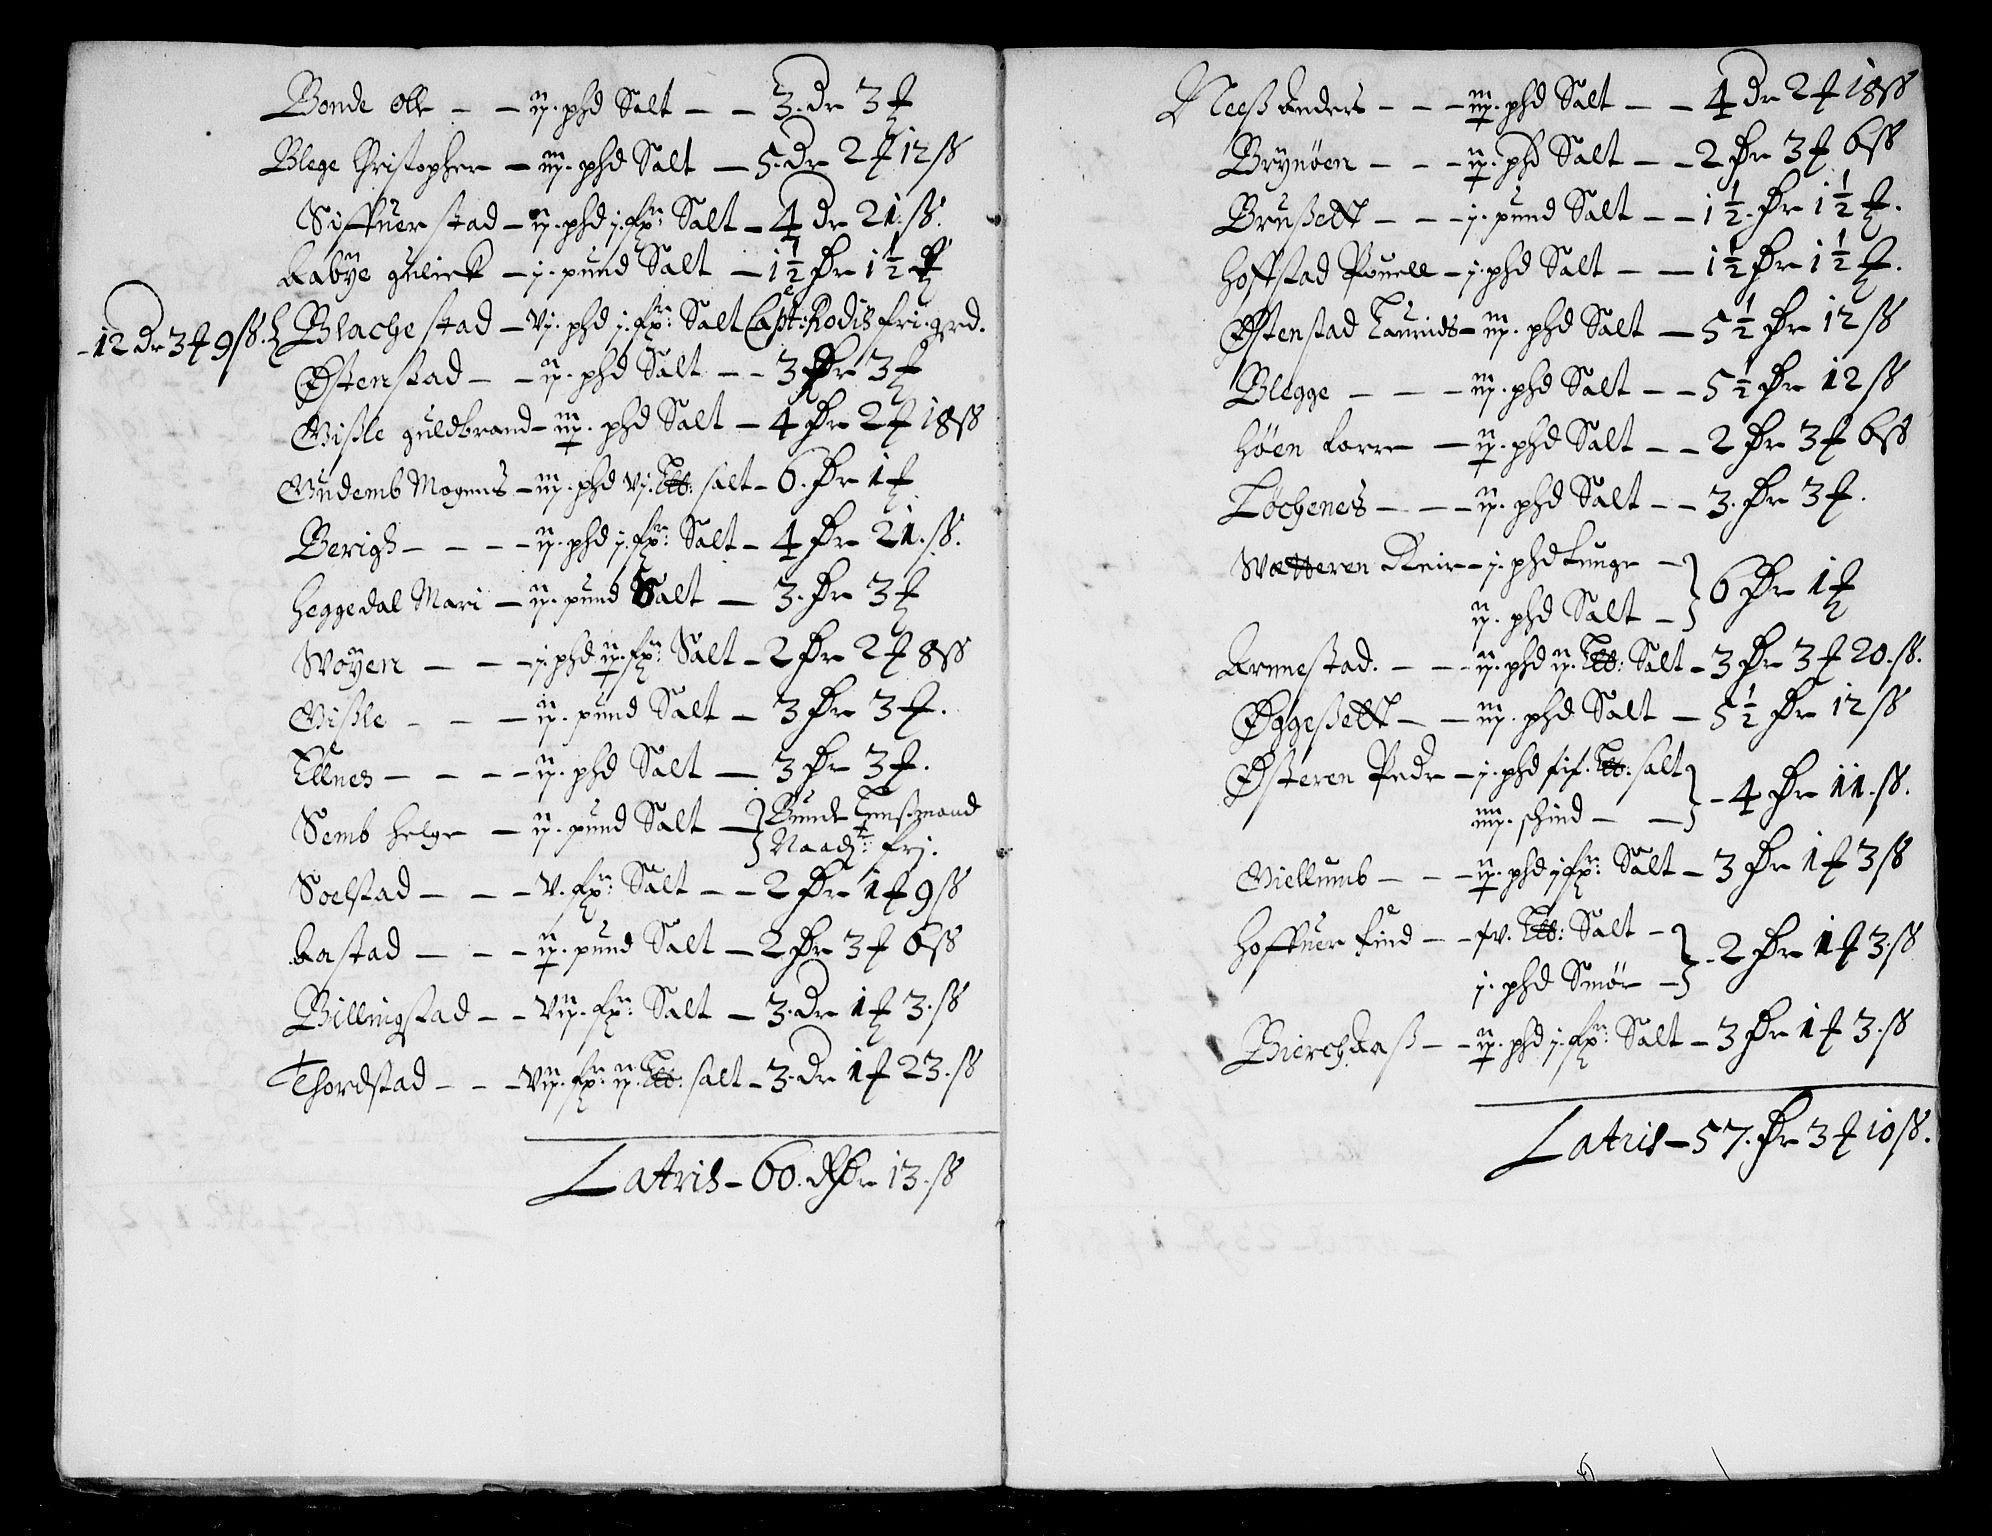 Bonde Oll — — ij. phd Salt — — 3. dr 3 ₰
Blege Christopher — iij. phd Salt — 5. dr 2 ₰ 12 ß
Siffuerstad — ij. phd j. fr: Salt — 4 dr 21. ß.
Aabÿe — j. pund Salt — 1½ Dr 1½ ₰
- 12 dr 3 ₰ 9 ß. Blachestad — Vj. phd j. fr: Salt Capt: Rodis fri. grd.
Østenstad — — ij. phd Salt — — 3 Dr 3 ₰
Gißle guldbrand — iij. phd Salt — 4 Dr 2 ₰ 18 ß
Gudemb Mogens — iij. phd Vj. salt — 6. Dr 1 ₰
Berigh — — — — ij. phd j. fr: Salt — 4 Dr 21. ß.
Heggedal Mari — ij. pund Salt — 3. Dr 3 ₰
Woÿen — — — j. phd ij. fr: Salt — 2 Dr 2 ₰ 8 ß
Gißle — — — ij. pund Salt — 3 Dr 3 ₰.
Ellnes — — — — ij. phd Salt — 3 Dr 3 ₰.
Semb Helge — ij. pund Salt — } Bunde Lenßmand
Naadj: frj.
Soelstad — — — V. fr: Salt — — 2 Dr 1 ₰ 9 ß
Aastad — — — ij. pund Salt — 2 Dr 3 ₰ 6 ß
Billingstad — — Vij. fr: Salt — 3. dr 1 ₰ 3. ß
Thordstad — — — Vij. fr: ij. salt — 3. dr 1 ₰ 23. ß
Latris — 60. Dr 13. ß
Neeß Anders — — — iij. phd Salt — — 4 dr 2 ₰ 18 ß
Brÿnöen — — — ij. phd Salt — — 2 Dr 3 ₰ 6 ß
Brußett — — — j. pund Salt — — 1½. Dr 1½ ₰.
Hoffstad Pouell — j. phd Salt — — 1½ Dr 1½ ₰.
Østenstad Laurids — iij. phd Salt — 5½ Dr 12 ß
Blegge — — — iij. phd Salt — — 5½ Dr 12 ß
Høen — ij. phd Salt — — 2 Dr 3 ₰ 6 ß
Löchenes — — — ij. phd Salt — — 3. Dr 3 ₰.
Wætteren — j. phd —
ij. phd Salt — } 6 Dr 1 ₰
Arnnestad. — — — ij. phd ij. Salt — 3 Dr 3 ₰ 20. ß.
Øggeßett — — iij. phd Salt — 5½ Dr 12 ß
Østeren Pedr — j. phd salt
iiij. schind — — } — 4 Dr 11. ß.
Giellumb — — — ij. phd j fr: Salt — 3 Dr 1 ₰ 3 ß
Hoffuer find — — Salt —
j. phd Smör — } — 2 Dr 1 ₰ 3. ß
Bierchaaß — — ij. phd j. fr: Salt — 3 Dr 1 ₰ 3. ß
Latris — 57. Dr 3 ₰ 10 ß.